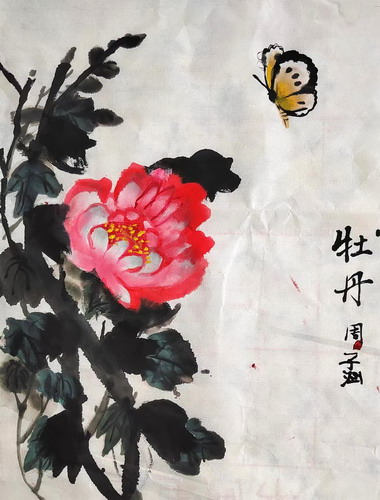 牡丹
周子涵